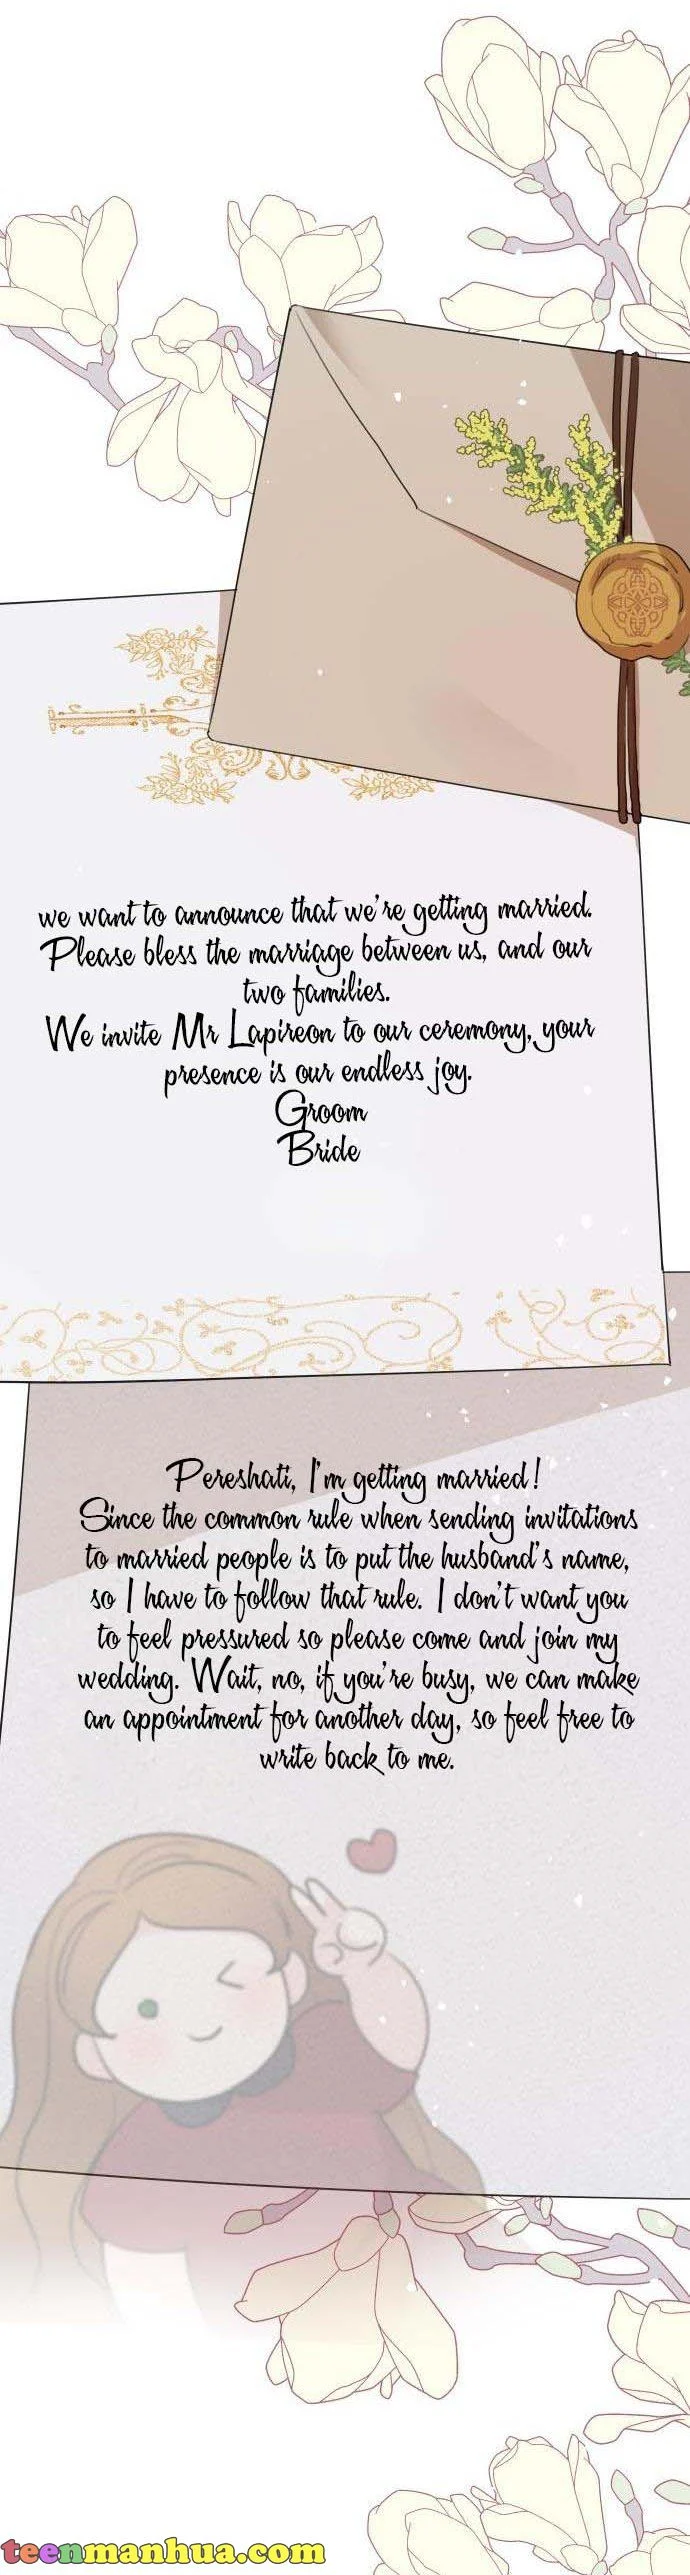 we want to announce that we're getting married.
Please bless the marriage between us, and our
two families.
We invite Mr Lapireon to our ceremony, your
presence is our endless joy.
Groom
Bride
Pereshati, I'm getting married!
Since the common rule when sending invitations
to married people is to put the husband's name,
so I have to follow that rule. I don't want you
to feel pressured so please come and join my
wedding. Wait, no, if you're busy, we can make
an appointment for another day, so feel free to
write back to me.
teenmanhua.com